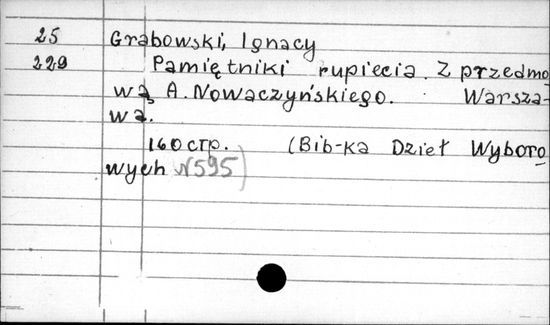 25 Grabowski, Ignacy
229 Pamiętniki rupiecia. Z przedmo
wą A. Nowaczyńskiego. Warsza-
wa.
160 стр. (Bib-ka Dzieł Wyboro
wych N595)